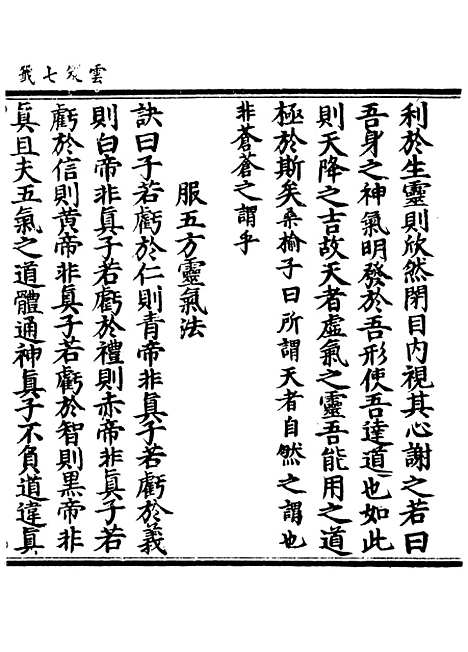 雲笈七籤
利於生靈則欣然閉目內視其心謝之若曰
吾身之神氣明發於吾形使吾達道也如此
則天降之吉故天者虛氣之靈吾能用之道
極於斯矣桑揄子曰所謂天者自然之謂也
非蒼蒼之謂乎
服五方靈氣法
訣曰子若虧於仁則青帝非真子若虧於義
則白帝非真子若虧於禮則赤帝非真子若
虧於信則黃帝非真子若虧於智則黑帝非
真且夫五氣之道體通神真子不負道違真